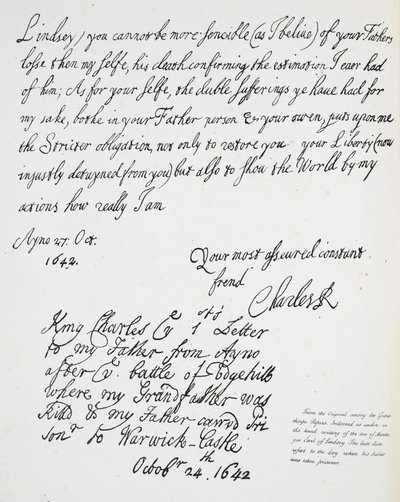 Lindsey, you cannot be more sencible (as I beliue) of your Fathers
losse then my selfe, his death confirming the estimation I euer had
of him; As for your selfe, the duble sufferings ye haue had for
my sake, bothe in your Father person & your owen, puts upon me
the Stricter obligation, not only to restore you your Liberty (now
injustly detayned from you) but also to show the World by my
actions how really I am
Ayno 27. Oct.
1642.
Your most asseured constant
frend
Charles R
King Charles ye 1st Letter
to my Father from Ayno
after ye battle of Edgehill
where my Grandfather was
kill'd & my Father carry'd Pri
sonr to Warwick-Castle
Octobr 24th 1642
From the Original among the Grims
thorpe Papers. Indorsed as under, in
the hand writing of the son of Monta
gue Earl of Lindsey. The last date
refers to the day when his father
was taken prisoner.